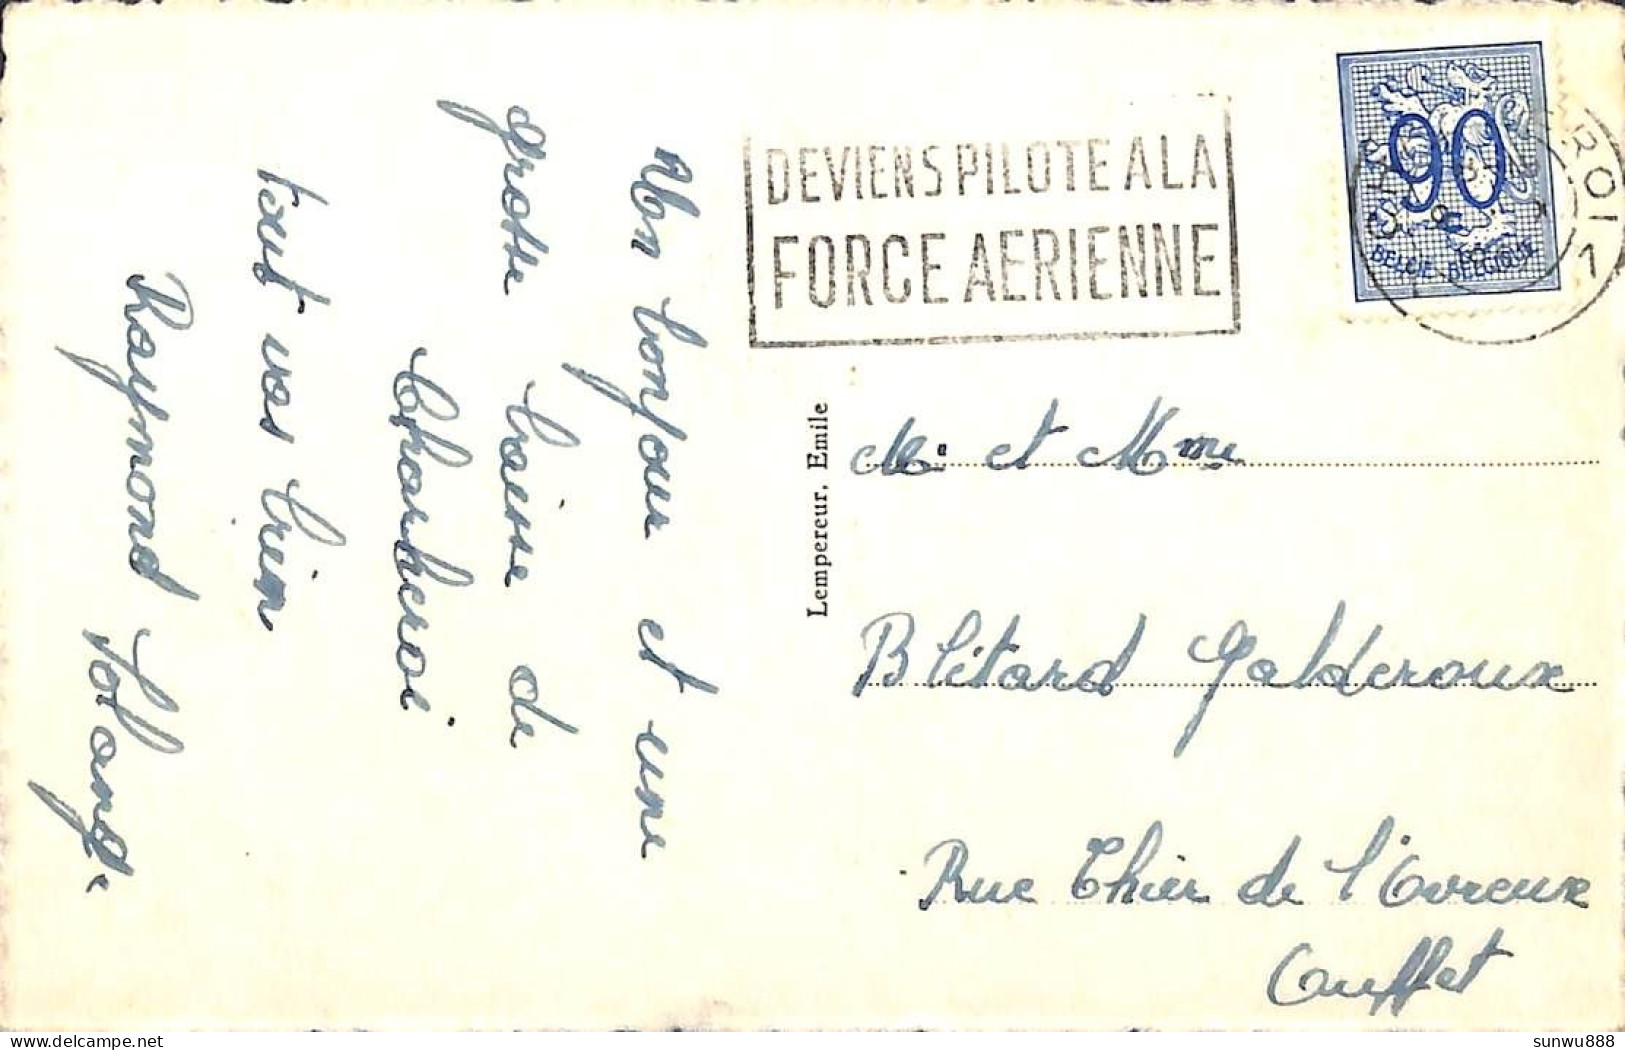 Un bonjour et une
grosse baisse de
Charleroi
tout vos bien
Raymond Solange
DEVIENS PILOTE A LA
FORCE AERIENNE
90
BELGIE-BELGIQUE
ROI 1
Lempereur, Emile
M. et Mme
Blétard Galderoux
Rue Thier de l'Ovreux
Ouffet
sunwu888